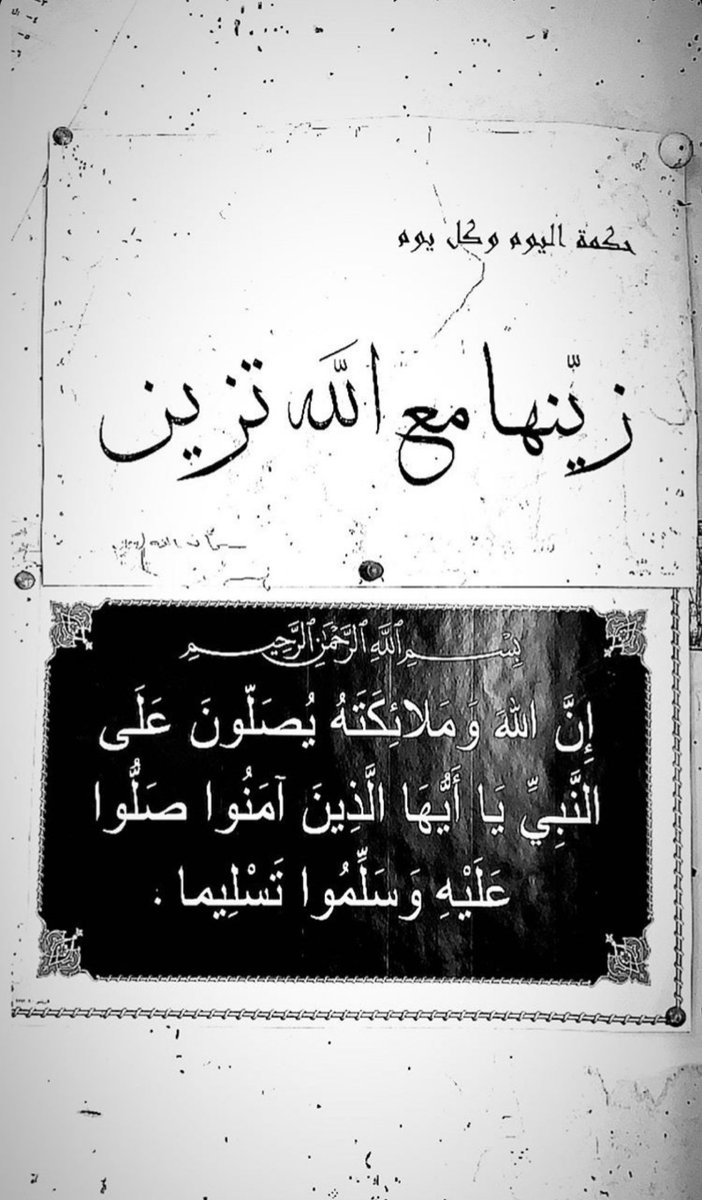 حكمة اليوم وكل يوم
زيّنها مع اللّٰه تزين
بِسْمِ ٱللَّهِ ٱلرَّحْمَٰنِ ٱلرَّحِيمِ
إِنَّ اللهَ وَمَلائِكَتَهُ يُصَلّونَ عَلَى
النَّبِيِّ يَا أَيُّهَا الَّذِينَ آمَنُوا صَلُّوا
عَلَيْهِ وَسَلِّمُوا تَسْلِيما .